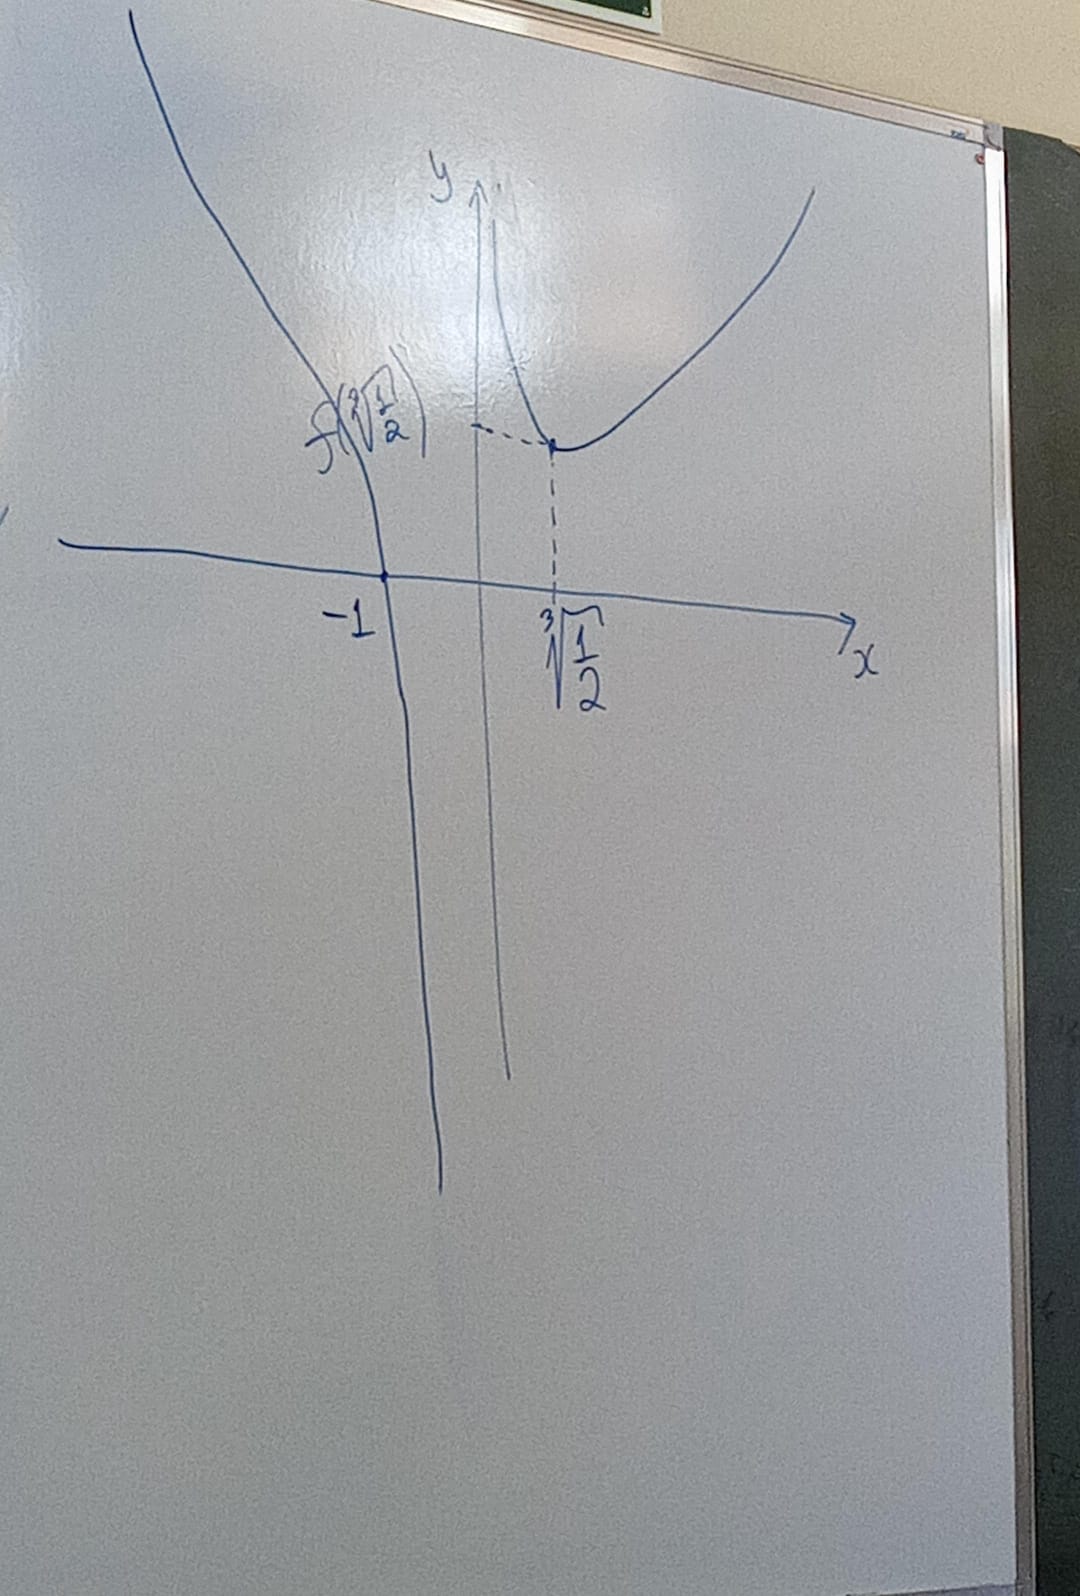 y
f(∛(1/2))
-1
∛(1/2)
x